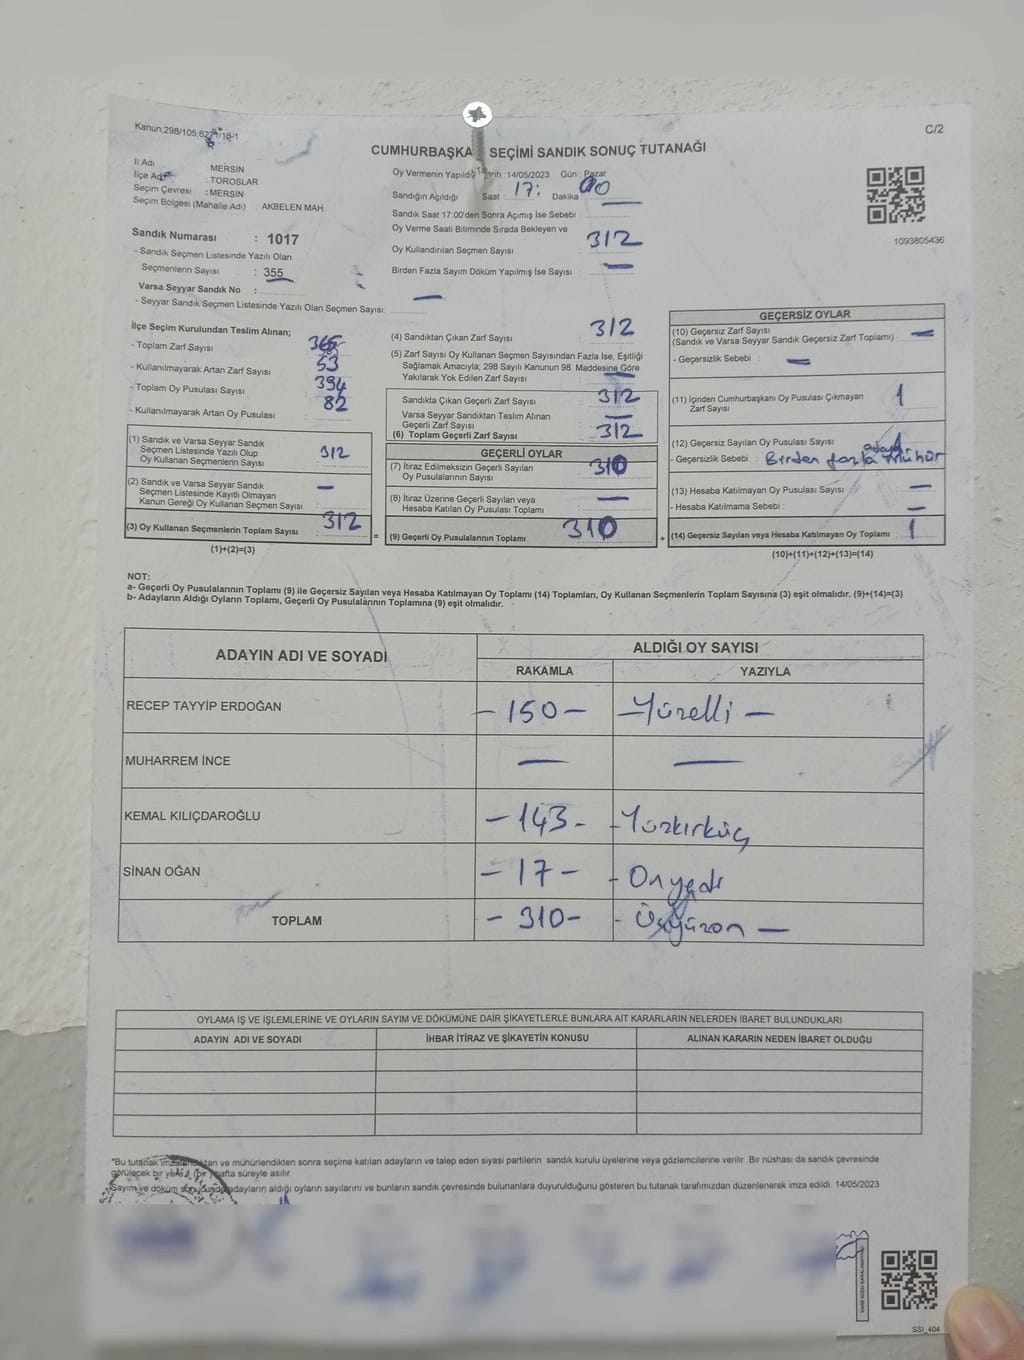 Kanun;298/105,627/1/18-1
C/2
CUMHURBAŞKA SEÇİMİ SANDIK SONUÇ TUTANAĞI
İl Adı MERSİN
İlçe Adı : TOROSLAR
Seçim Çevresi : MERSİN
Seçim Bölgesi (Mahalle Adı) : AKBELEN MAH.
Sandık Numarası : 1017
- Sandık Seçmen Listesinde Yazılı Olan
Seçmenlerin Sayısı : 355
Varsa Seyyar Sandık No :
- Seyyar Sandık Seçmen Listesinde Yazılı Olan Seçmen Sayısı: —
Oy Vermenin Yapıldığı Tarih :14/05/2023 Gün : Pazar
Sandığın Açıldığı Saat 17: Dakika 00
Sandık Saat 17:00'den Sonra Açımış İse Sebebi
Oy Verme Saati Bitiminde Sırada Bekleyen ve
Oy Kullandırılan Seçmen Sayısı : 312
Birden Fazla Sayım Döküm Yapılmış İse Sayısı : —
1093805436
İlçe Seçim Kurulundan Teslim Alınan;
- Toplam Zarf Sayısı : 365
- Kullanılmayarak Artan Zarf Sayısı : 53
- Toplam Oy Pusulası Sayısı : 394
- Kullanılmayarak Artan Oy Pusulası : 82
(1) Sandık ve Varsa Seyyar Sandık
Seçmen Listesinde Yazılı Olup
Oy Kullanan Seçmenlerin Sayısı : 312
(2) Sandık ve Varsa Seyyar Sandık
Seçmen Listesinde Kayıtlı Olmayan
Kanun Gereği Oy Kullanan Seçmen Sayısı : —
(3) Oy Kullanan Seçmenlerin Toplam Sayısı : 312
(1)+(2)=(3)
(4) Sandıktan Çıkan Zarf Sayısı : 312
(5) Zarf Sayısı Oy Kullanan Seçmen Sayısından Fazla İse, Eşitliği
Sağlamak Amacıyla; 298 Sayılı Kanunun 98. Maddesine Göre
Yakılarak Yok Edilen Zarf Sayısı : —
Sandıkta Çıkan Geçerli Zarf Sayısı : 312
Varsa Seyyar Sandıktan Teslim Alınan
Geçerli Zarf Sayısı : —
(6) Toplam Geçerli Zarf Sayısı : 312
GEÇERLİ OYLAR
(7) İtiraz Edilmeksizin Geçerli Sayılan
Oy Pusulalarının Sayısı : 310
(8) İtiraz Üzerine Geçerli Sayılan veya
Hesaba Katılan Oy Pusulası Toplamı : —
= (9) Geçerli Oy Pusulalarının Toplamı : 310
GEÇERSİZ OYLAR
(10) Geçersiz Zarf Sayısı
(Sandık ve Varsa Seyyar Sandık Geçersiz Zarf Toplamı) : —
- Geçersizlik Sebebi : —
(11) İçinden Cumhurbaşkanı Oy Pusulası Çıkmayan
Zarf Sayısı : 1
(12) Geçersiz Sayılan Oy Pusulası Sayısı : 1
- Geçersizlik Sebebi : Birden fazla adaya mühür
(13) Hesaba Katılmayan Oy Pusulası Sayısı : —
- Hesaba Katılmama Sebebi : —
+ (14) Geçersiz Sayılan veya Hesaba Katılmayan Oy Toplamı : 1
(10)+(11)+(12)+(13)=(14)
NOT:
a- Geçerli Oy Pusulalarının Toplamı (9) ile Geçersiz Sayılan veya Hesaba Katılmayan Oy Toplamı (14) Toplamları, Oy Kullanan Seçmenlerin Toplam Sayısına (3) eşit olmalıdır. (9)+(14)=(3)
b- Adayların Aldığı Oyların Toplamı, Geçerli Oy Pusulalarının Toplamına (9) eşit olmalıdır.
ADAYIN ADI VE SOYADI ALDIĞI OY SAYISI
RAKAMLA YAZIYLA
RECEP TAYYİP ERDOĞAN – 150 – – Yüzelli –
MUHARREM İNCE — —
KEMAL KILIÇDAROĞLU – 143 – – Yüzkırküç
SİNAN OĞAN – 17 – – Onyedi
TOPLAM – 310 – – Üçyüzon –
OYLAMA İŞ VE İŞLEMLERİNE VE OYLARIN SAYIM VE DÖKÜMÜNE DAİR ŞİKAYETLERLE BUNLARA AİT KARARLARIN NELERDEN İBARET BULUNDUKLARI
ADAYIN ADI VE SOYADI İHBAR İTİRAZ VE ŞİKAYETİN KONUSU ALINAN KARARIN NEDEN İBARET OLDUĞU
*Bu tutanak imzalandıktan ve mühürlendikten sonra seçime katılan adayların ve talep eden siyasi partilerin sandık kurulu üyelerine veya gözlemcilerine verilir. Bir nüshası da sandık çevresinde
görülecek bir yere bir hafta süreyle asılır.
Sayım ve döküm sonucunda adayların aldığı oyların sayılarını ve bunların sandık çevresinde bulunanlara duyurulduğunu gösteren bu tutanak tarafımızdan düzenlenerek imza edildi. 14/05/2023
SSI_404